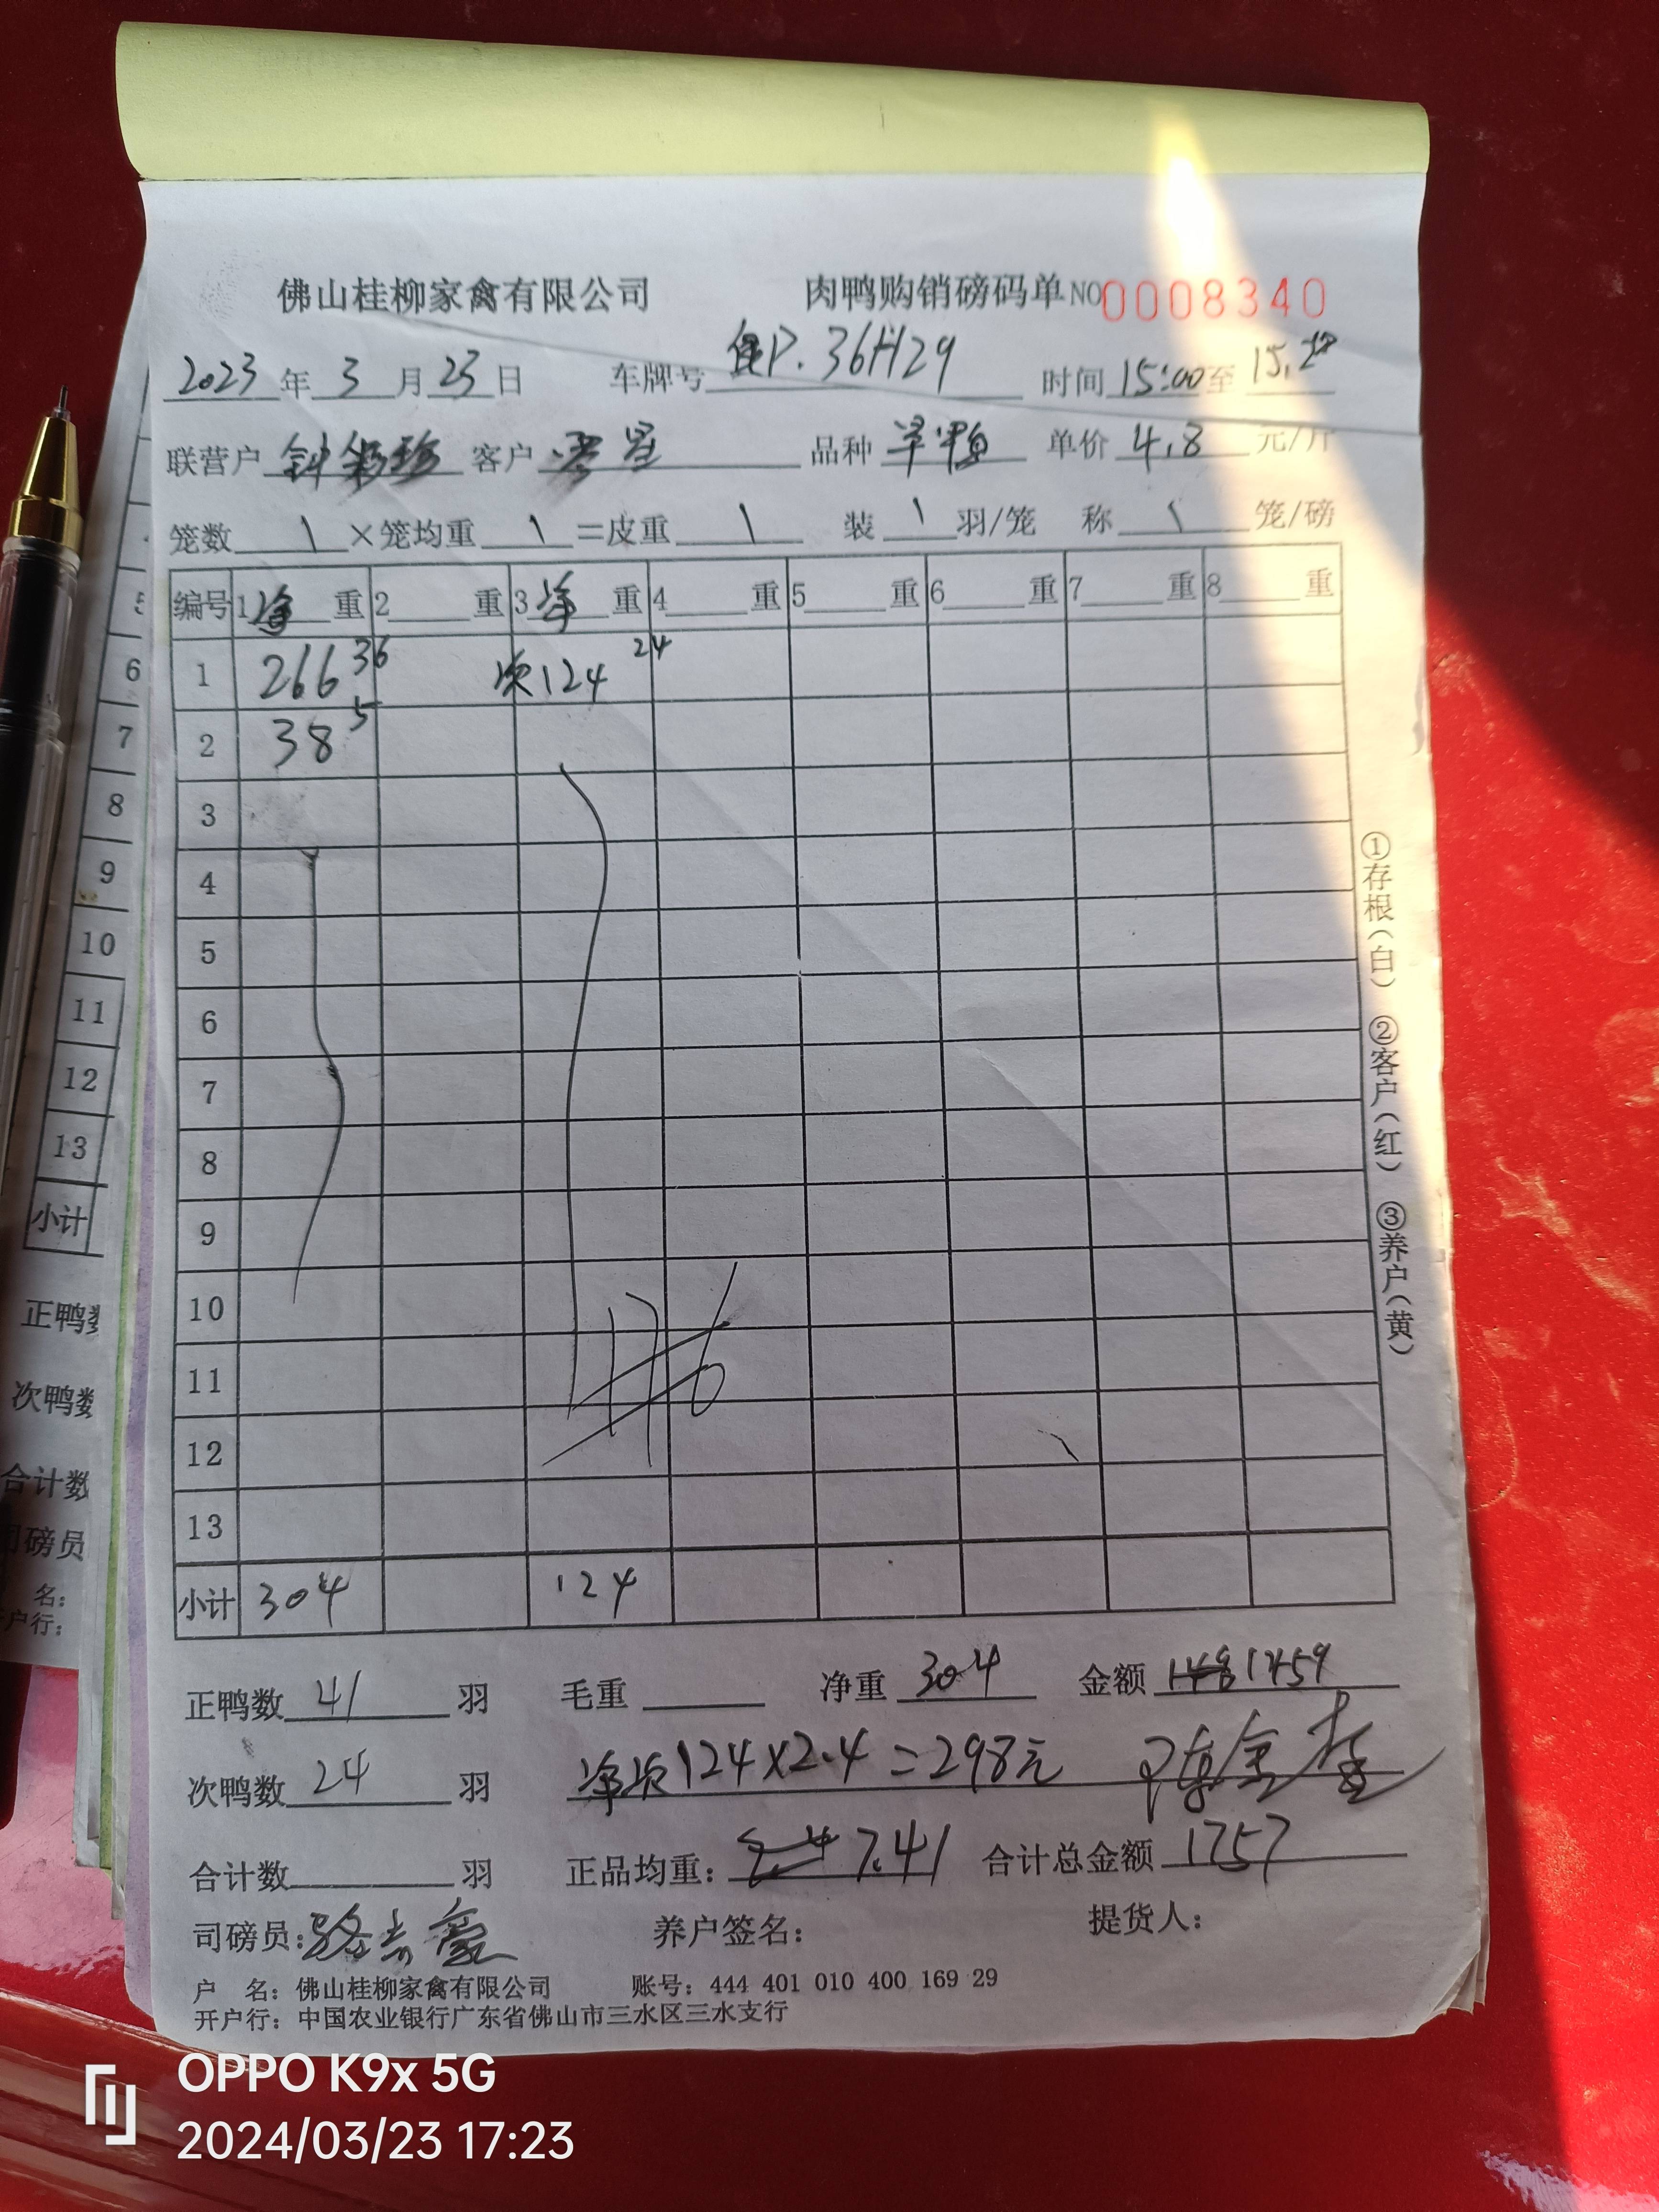 佛山桂柳家禽有限公司 肉鸭购销磅码单 NO 0008340
2023 年 3 月 23 日 车牌号 P.36H29 时间 15:00 至 15:
联营户 钟 客户 零星 品种 单价 4.8 元/斤
笼数 \ ×笼均重 \ =皮重 \ 装 \ 羽/笼 称 \ 笼/磅
编号 1 净 重 2 重 3 净 重 4 重 5 重 6 重 7 重 8 重
1 266 36 次124 24
2 38 5
3
4
5
6
7
8
9
10
11
12
13
小计 304 124
正鸭数 41 羽 毛重 净重 304 金额 1459
次鸭数 24 羽 净次124×2.4=298元
合计数 羽 正品均重: 7.41 合计总金额 1757
司磅员: 养户签名: 提货人:
户 名: 佛山桂柳家禽有限公司 账号: 444 401 010 400 169 29
开户行: 中国农业银行广东省佛山市三水区三水支行
①存根(白) ②客户(红) ③养户(黄)
6
7
8
9
10
11
12
13
小计
正鸭
次鸭数
合计数
磅员
名:
户行:
OPPO K9x 5G
2024/03/23 17:23